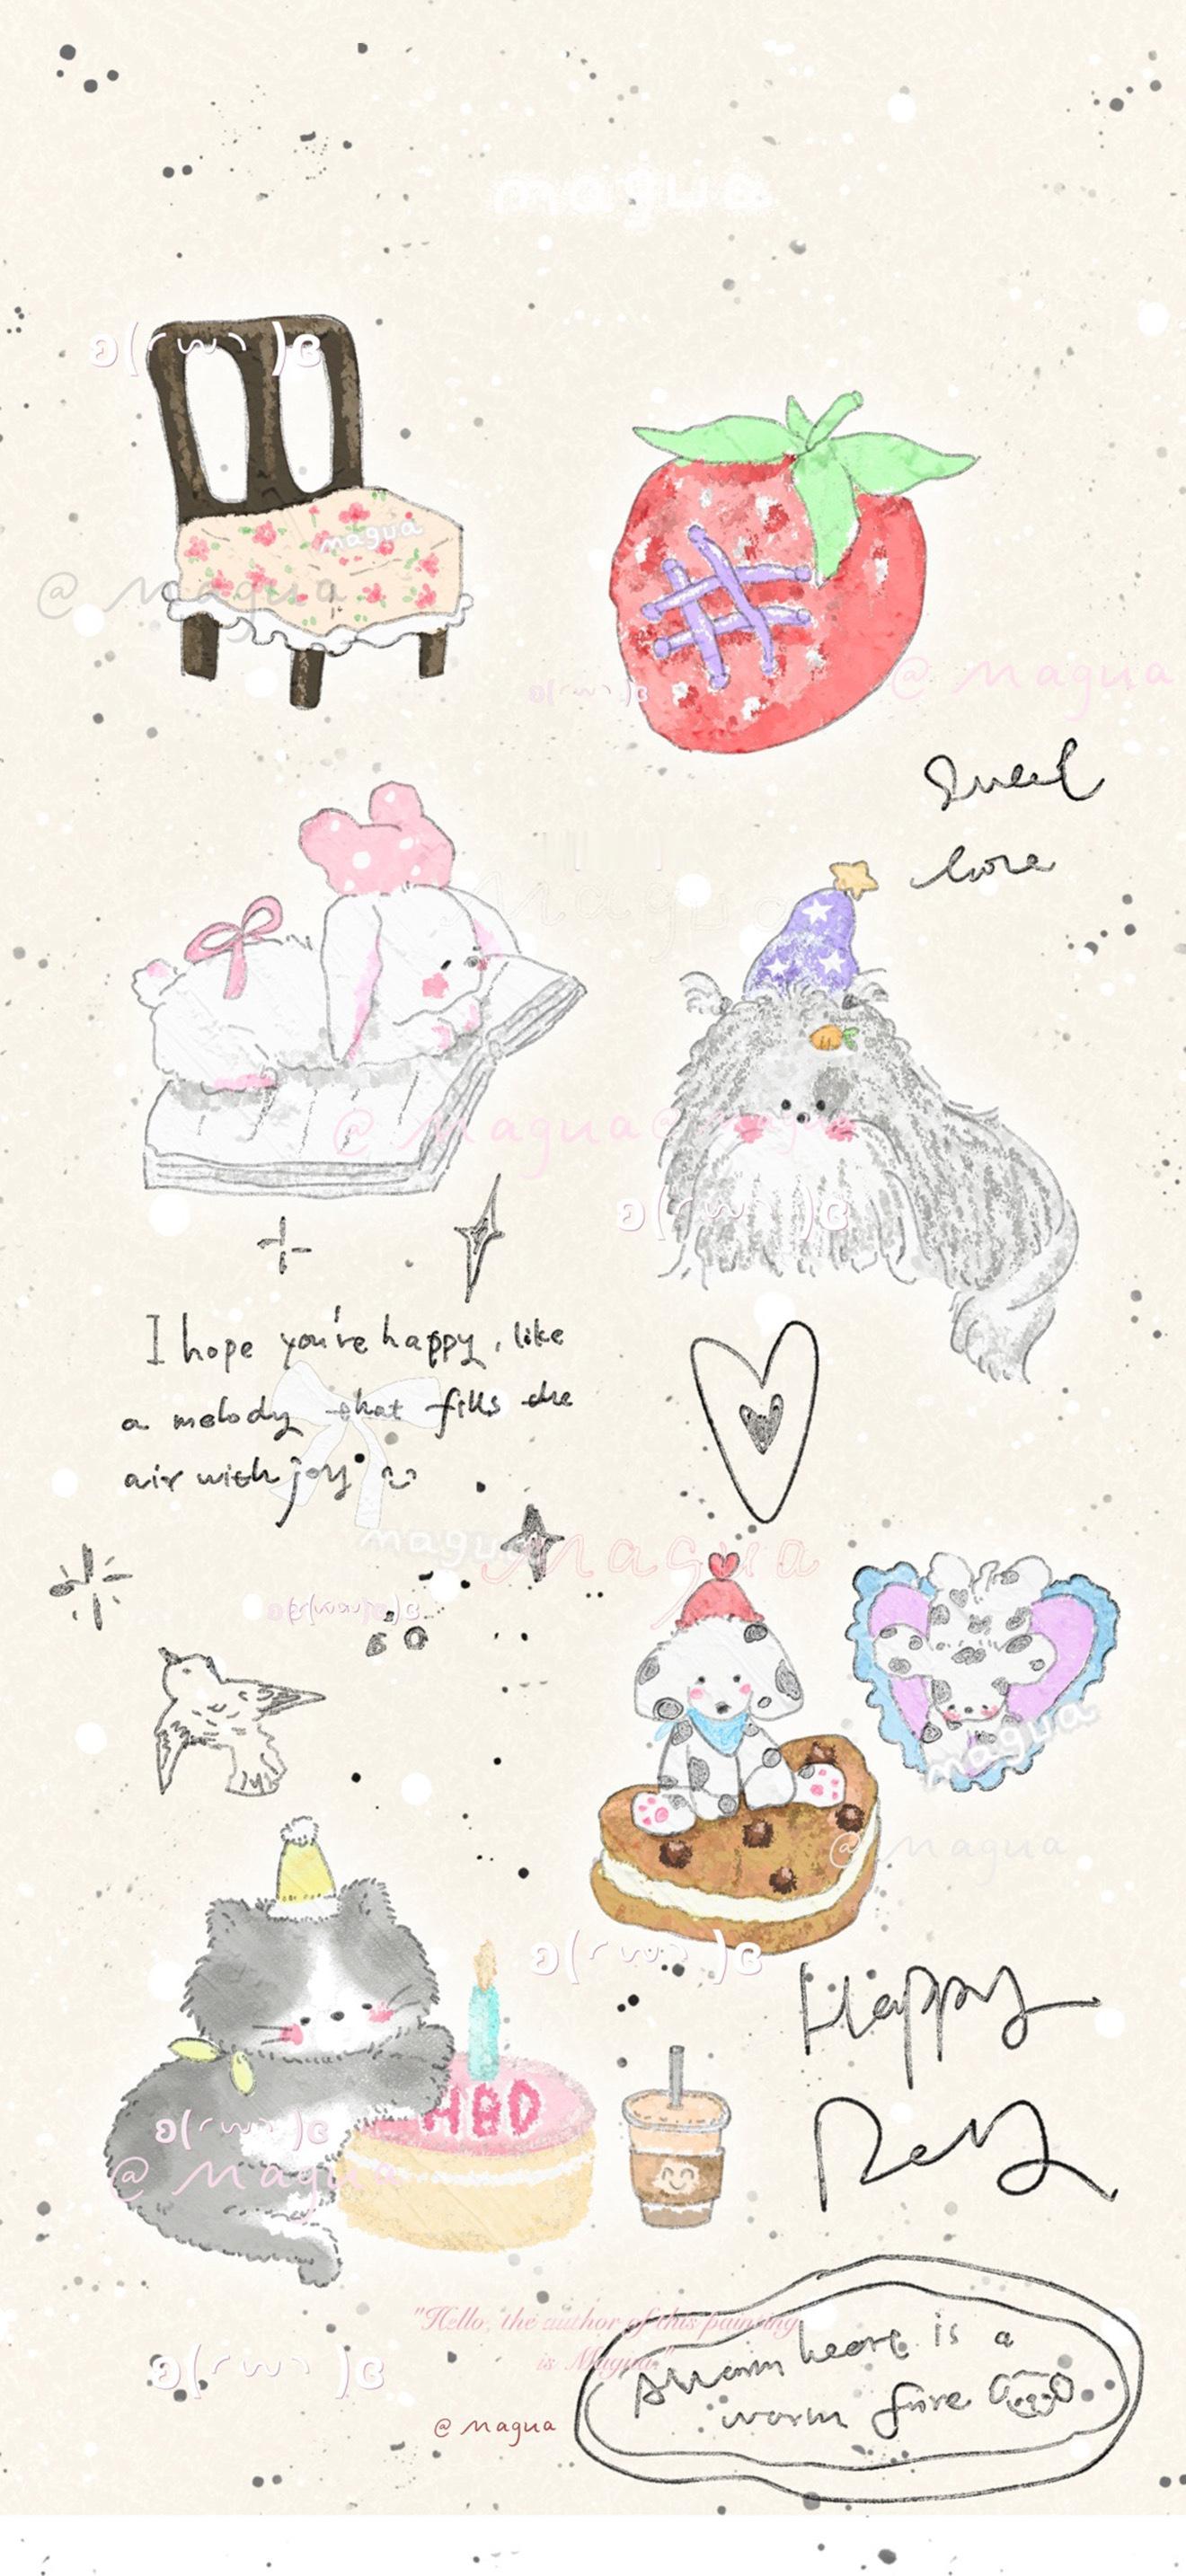 magua
magua
@ magua
@ magua
Sweet
love
Magua
@ magua
@ magua
I hope you're happy, like
a melody that fills the
air with joy
magua
Magua
magua
@ magua
HBD
Happy
Day
@ magua
"Hello, the author of this painting
is Magua."
A warm heart is a
warm fire
@ magua